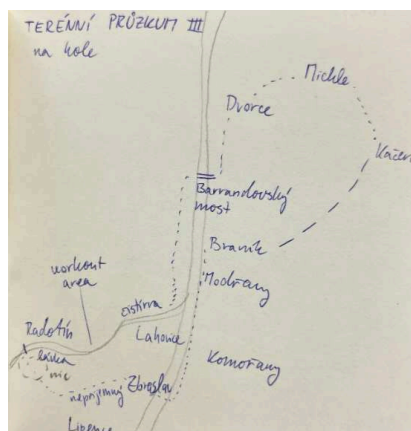 TERÉNNÍ PRŮZKUM III
na kole
Michle
Dvorce
Kačer
Barrandovský
most
Braník
workout
area
Modřany
Radotín
Lahovice
lávka
Komořany
nepříjemný
Zbraslav
Lipence